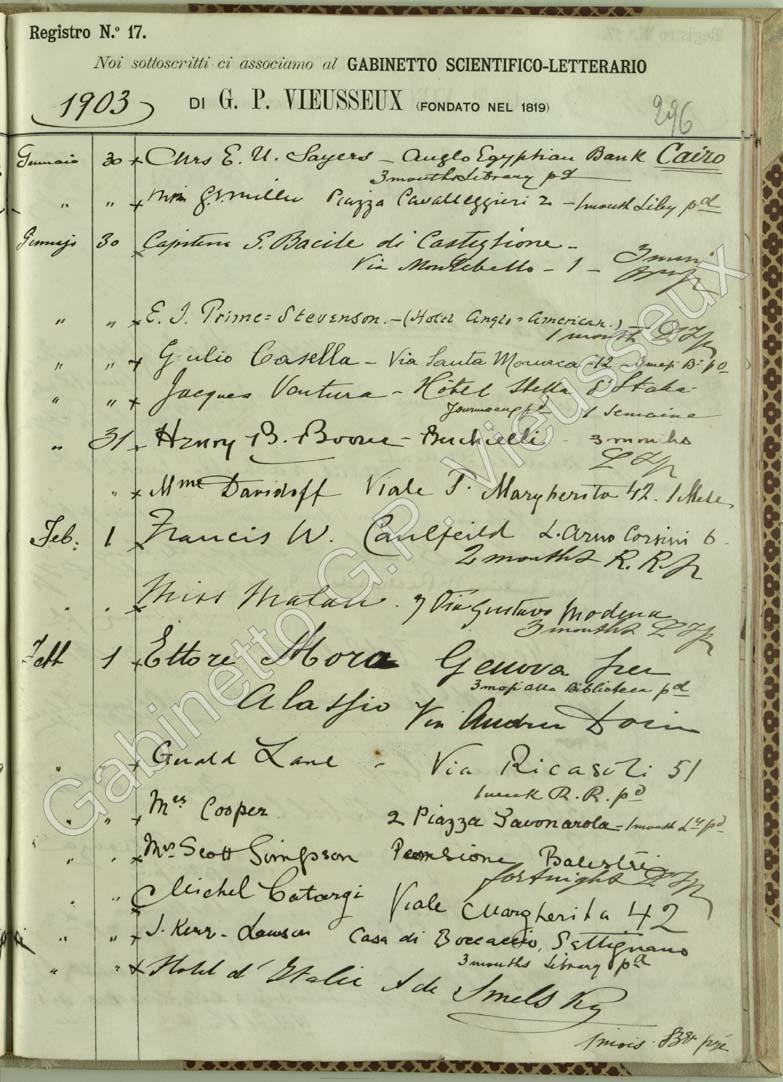 Registro N.º 17.
Noi sottoscritti ci associamo al GABINETTO SCIENTIFICO-LETTERARIO
1903 DI G. P. VIEUSSEUX (FONDATO NEL 1819)
296
Gennaio 30 x Chrs E. U. Sayers - Anglo Egyptian Bank Cairo
3 months Library pd
" " x Piazza Cavalleggieri 2 - 1 month Liby pd
Gennajo 30 Capitano G. Bacile di Castiglione -
Via Montebello - 1 - 3 mesi
" " x E. I. Prime=Stevenson. - (Hotel Anglo=American.) -
1 month
" " x Giulio Casella - Via Santa Monaca - 12
" " x Jacques Ventura - Hôtel Stella d'Italia
1 Semaine
" 31 x Henry B. Boone - 3 months
" x Mme Davidoff Viale P. Margherita 42. 1 Mese
Feb: 1 x Francis W. Caulfeild L. Arno Corsini 6
2 months R. R.
" " x Miss Malan. 7 Via Gustavo Modena
3 months
Febb 1 x Ettore Mora Genova per
3 mesi alla Biblioteca pd
Alassio Via Andrea Doria
" x Gerald Lane - Via Ricasoli 51
1 week R. R. pd
" " x Mrs Cooper 2 Piazza Savonarola - 1 month Ly pd
" " x Mrs Scott Simpson Pensione Balestri
fortnight
" " Michel Catargi Viale Margherita 42
" " x J. Kerr-Lawson Casa di Boccaccio, Settignano
3 months Library pd
" " x Hotel d'Italie A de Smelsky
1 mois
Gabinetto G.P. Vieusseux